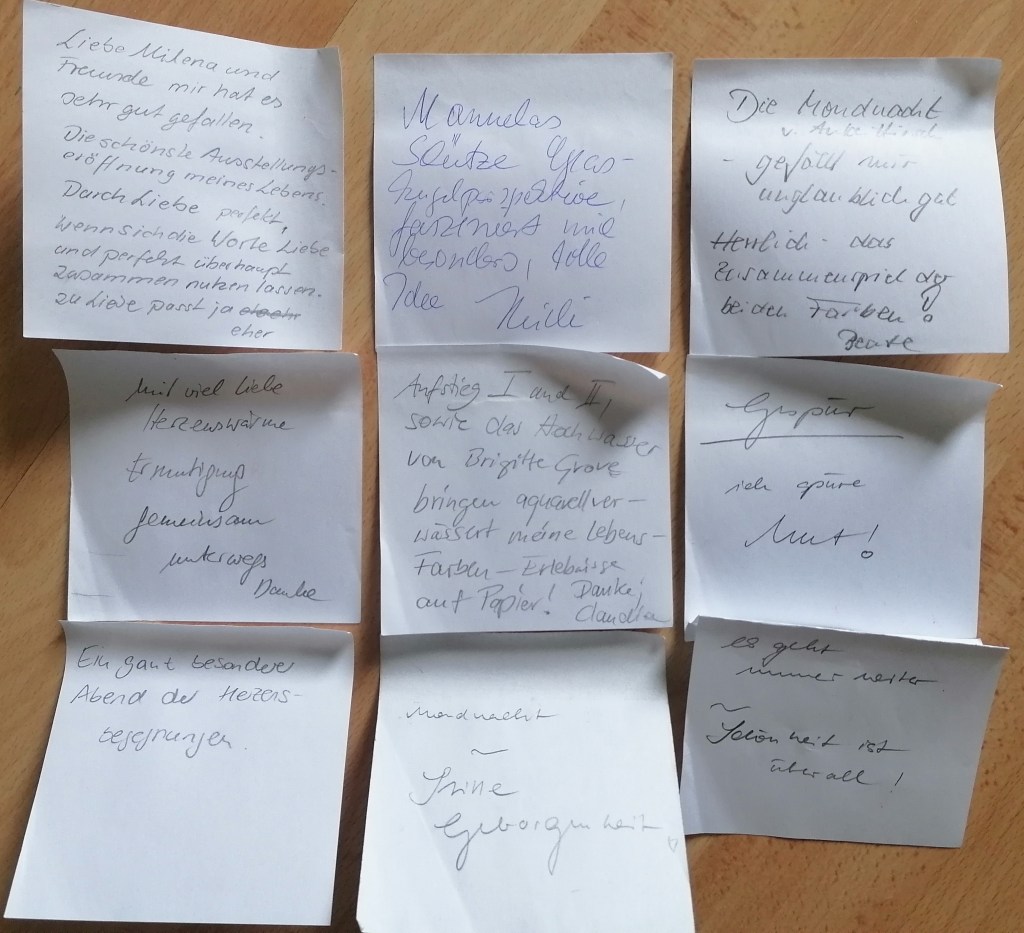 Liebe Milena und
Freunde mir hat es
sehr gut gefallen.
Die schönste Ausstellungs-
eröffnung meines Lebens.
Durch Liebe perfekt,
wenn sich die Worte Liebe
und perfekt überhaupt
zusammen nutzen lassen.
zu Liebe passt ja
eher
Manuelas
Skizze Glas-
kugelperspektive,
fasziniert mich
besonders, tolle
Idee
Die Mondnacht
v. Anke
- gefällt mir
unglaublich gut
Herrlich - das
Zusammenspiel der
beiden Farben!
Beate
Mit viel Liebe
Herzenswärme
Ermutigung
gemeinsam
unterwegs
Danke
Aufstieg I und II,
sowie das Hochwasser
von Brigitte Grove
bringen aquarellver-
wässert meine Lebens-
Farben-Erlebnisse
auf Papier! Danke,
Claudia
Gespür
ich spüre
Mut!
Ein ganz besonderer
Abend der Herzens-
begegnungen.
Mondnacht
~
Stille
Geborgenheit
es geht
immer weiter
~
Schönheit ist
überall!